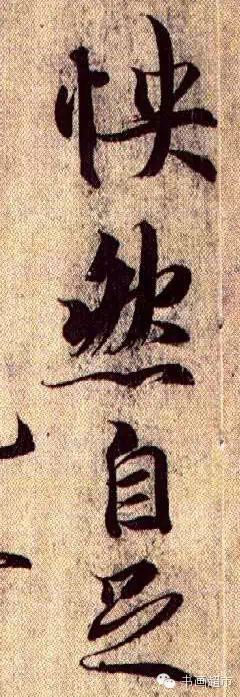 怏然自足
书画超市